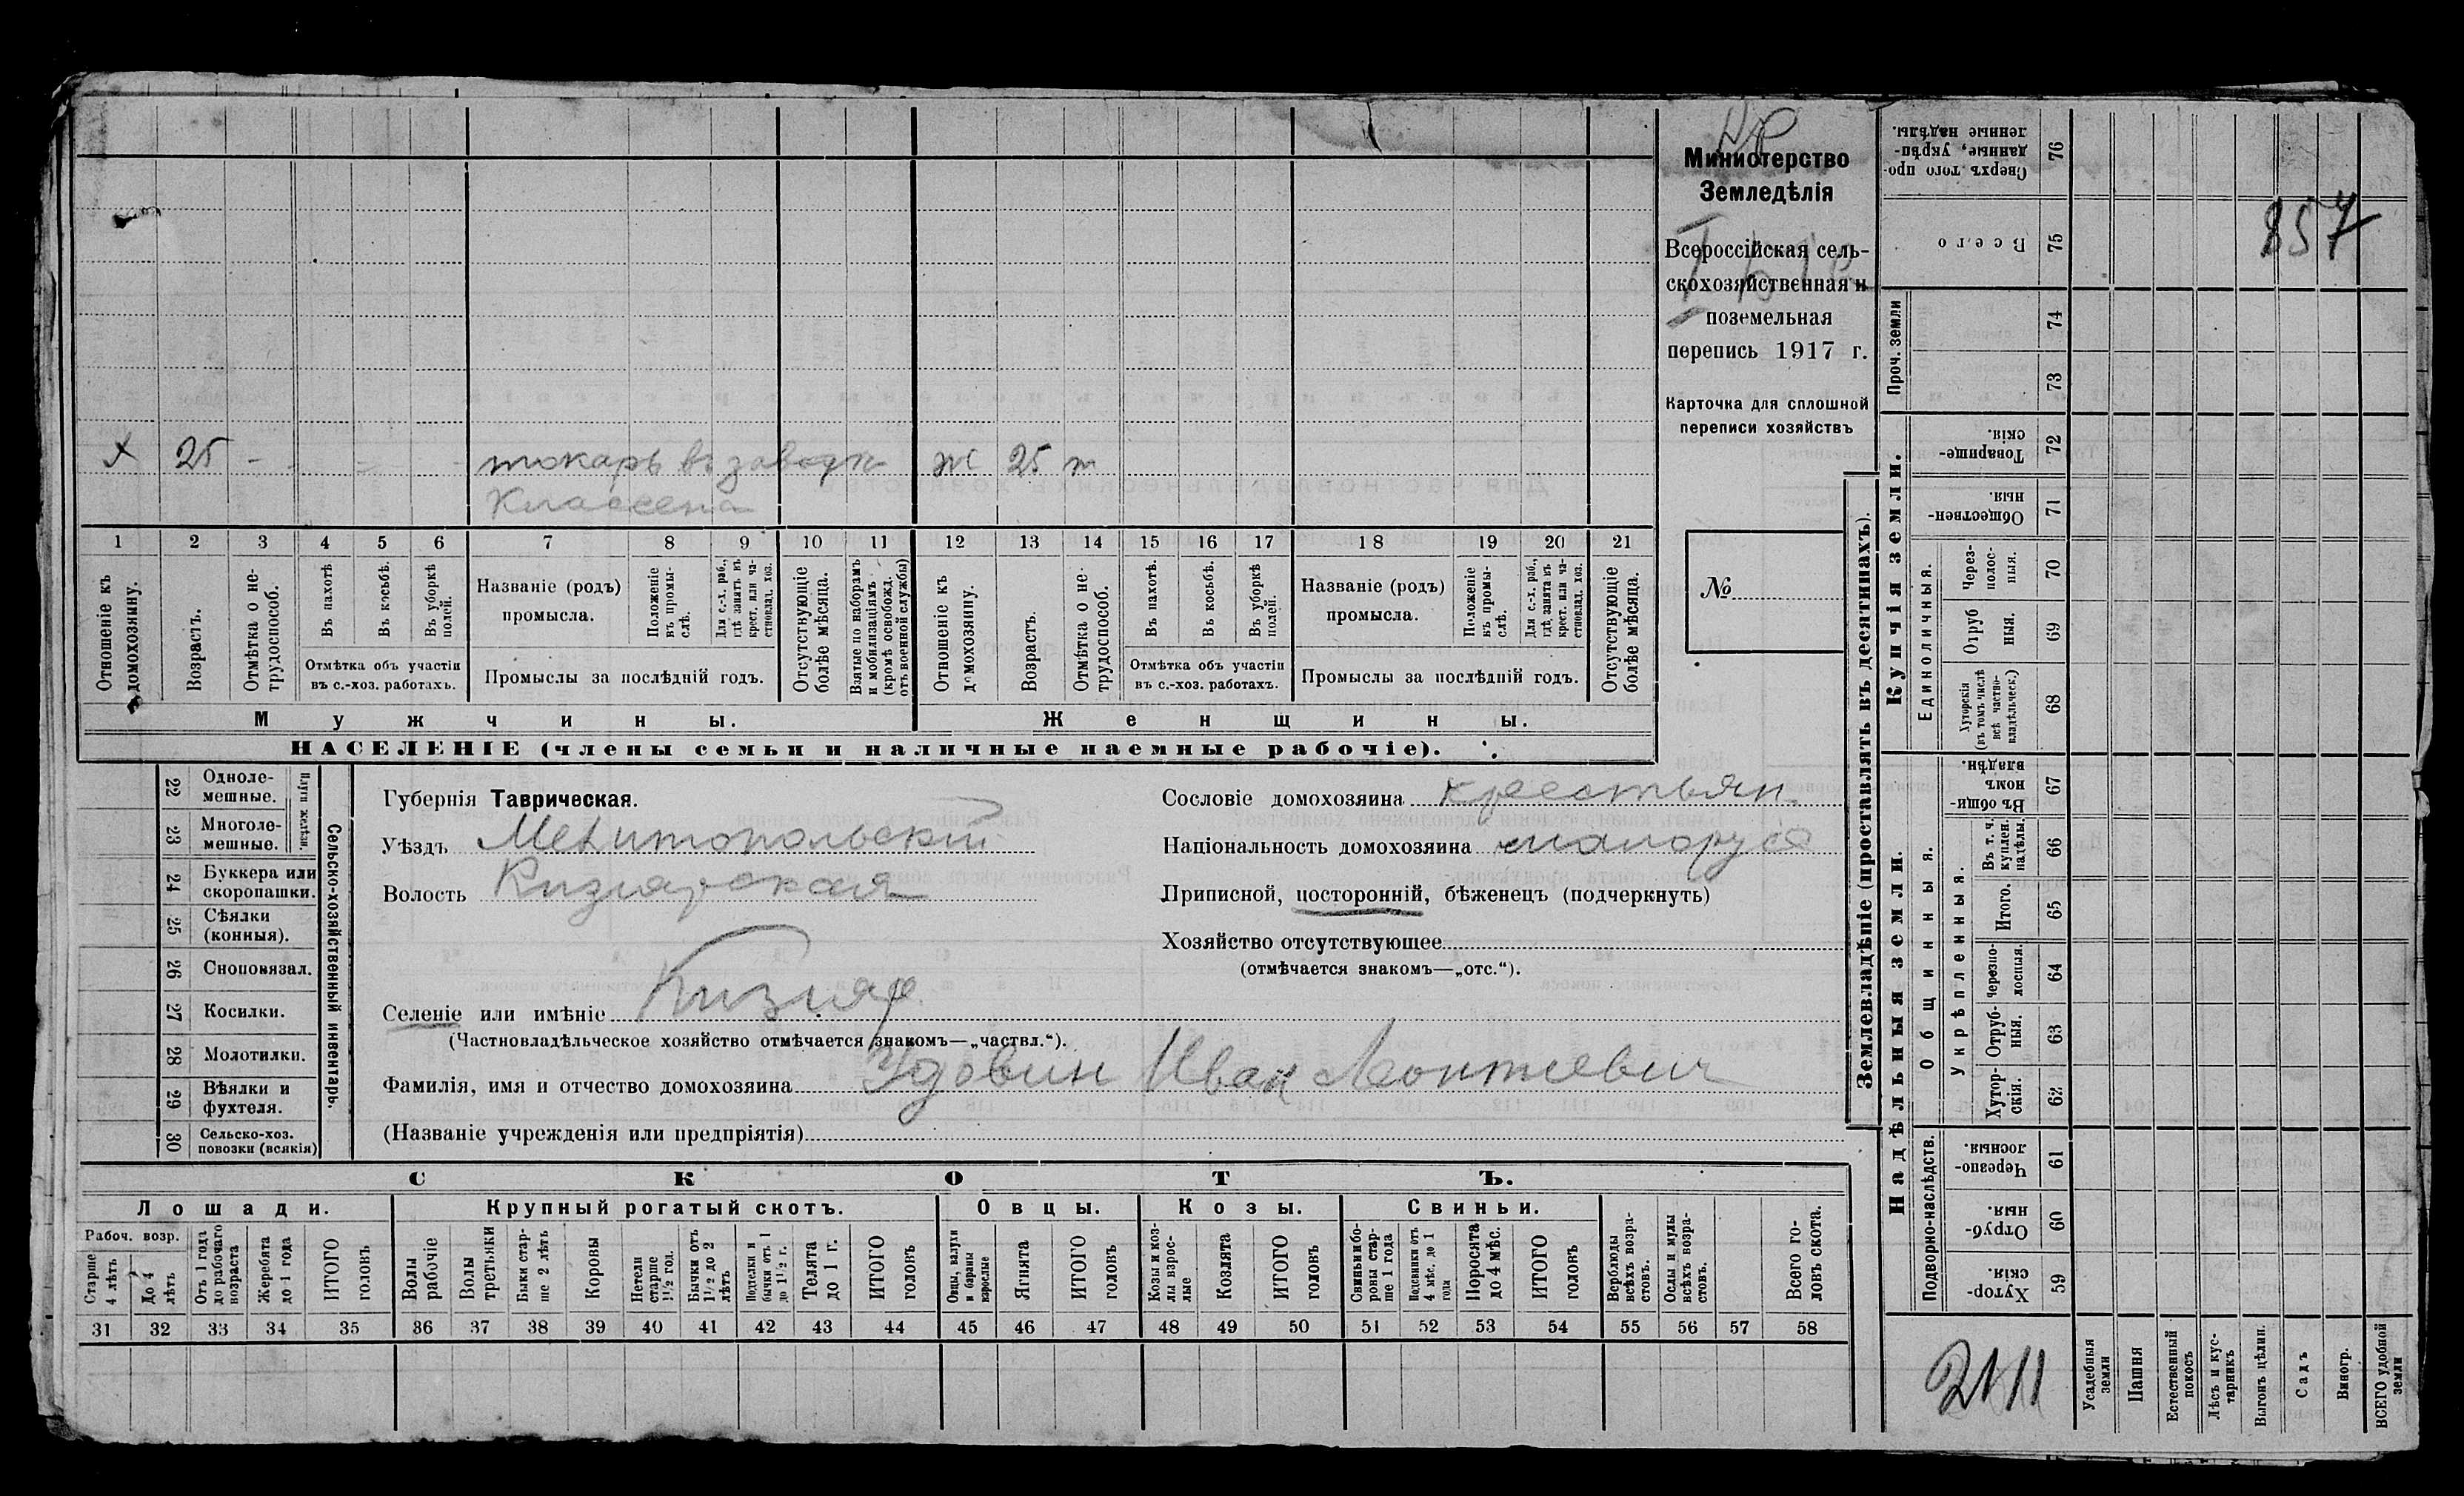 Х 25 - - - - токарь въ заводѣ ж 25 т
Классена
1 2 3 4 5 6 7 8 9 10 11 12 13 14 15 16 17 18 19 20 21
Отношеніе къ домохозяину.
Возрастъ.
Отмѣтка о нетрудоспособ.
Въ пахотѣ
Въ косьбѣ.
Въ уборкѣ полей.
Отмѣтка объ участіи въ с.-хоз. работахъ.
Названіе (родъ) промысла.
Положеніе въ промыслѣ.
Для с.-х. раб., гдѣ занятъ въ крест. или частновлад. хоз.
Промыслы за послѣдній годъ.
Отсутствующіе болѣе мѣсяца.
Взятые по наборамъ и мобилизаціямъ (кромѣ освобожд. отъ военной службы)
Отношеніе къ домохозяину.
Возрастъ.
Отмѣтка о нетрудоспособ.
Въ пахотѣ.
Въ косьбѣ.
Въ уборкѣ полей.
Отмѣтка объ участіи въ с.-хоз. работахъ.
Названіе (родъ) промысла.
Положеніе въ промыслѣ.
Для с.-х. раб., гдѣ занята въ крест. или частновлад. хоз.
Промыслы за послѣдній годъ.
Отсутствующіе болѣе мѣсяца.
Мужчины.
Женщины.
НАСЕЛЕНІЕ (члены семьи и наличные наемные рабочіе).
Министерство
Земледѣлія
Всероссійская сель-
скохозяйственная и
поземельная
перепись 1917 г.
Карточка для сплошной
переписи хозяйствъ
№
22 Одноле-
мешные.
23 Многоле-
мешные.
Плуги желѣзн.
24 Буккера или
скоропашки.
25 Сѣялки
(конныя).
26 Сноповязал.
27 Косилки.
28 Молотилки.
29 Вѣялки и
фухтеля.
30 Сельско-хоз.
повозки (всякія)
Сельско-хозяйственный инвентарь.
Губернія Таврическая.
Уѣздъ Мелитопольскій
Волость Кизіярская
Селеніе или имѣніе Кизіяр
(Частновладѣльческое хозяйство отмѣчается знакомъ—„частвл.“).
Фамилія, имя и отчество домохозяина Удовин Иван Леонтіевич
(Названіе учрежденія или предпріятія)
Сословіе домохозяина крестьян.
Національность домохозяина малорус
Приписной, посторонній, бѣженецъ (подчеркнуть)
Хозяйство отсутствующее
(отмѣчается знакомъ—„отс.“).
СКОТЪ.
Лошади.
Крупный рогатый скотъ.
Овцы.
Козы.
Свиньи.
Рабоч. возр.
Старше 4 лѣтъ
До 4 лѣтъ
Отъ 1 года до рабочаго возраста
Жеребята до 1 года
ИТОГО головъ
Волы рабочіе
Волы третьяки
Быки старше 2 лѣтъ
Коровы
Нетели старше 1½ год.
Бычки отъ 1½ до 2 лѣтъ
Подтелки и бычки отъ 1 до 1½ г.
Телята до 1 г.
ИТОГО головъ
Овцы, валухи и бараны взрослые
Ягнята
ИТОГО головъ
Козы и козлы взрослые
Козлята
ИТОГО головъ
Свиньи боровы старше 1 года
Подсвинки отъ 4 мѣс. до 1 года
Поросята до 4 мѣс.
ИТОГО головъ
Верблюды всѣхъ возрастовъ.
Ослы и мулы всѣхъ возрастовъ.
Всего головъ скота.
31 32 33 34 35 36 37 38 39 40 41 42 43 44 45 46 47 48 49 50 51 52 53 54 55 56 57 58
Землевладѣніе (проставлять въ десятинахъ).
Надѣльныя земли.
Купчія земли.
Проч. земли
Подворно-наслѣдств.
Общинныя.
Укрѣпленныя.
Единоличныя.
Сверхъ того проданные, укрѣпленные надѣлы. 76
Всего 75
74
73
Товарищескія. 72
Общественныя. 71
Черезполосныя. 70
Отрубныя. 69
Хуторскія (въ томъ числѣ всѣ частновладѣльческ.) 68
Въ общинномъ владѣн. 67
Въ т. ч. куплен. надѣлы. 66
Итого. 65
Черезполосныя. 64
Отрубныя. 63
Хуторскія. 62
Черезполосныя. 61
Отрубныя. 60
Хуторскія. 59
857
Усадебныя земли
Пашня
Естественный покосъ
Лѣсъ и кустарникъ
Выгонъ цѣлин.
Садъ
Виногр.
ВСЕГО удобной земли